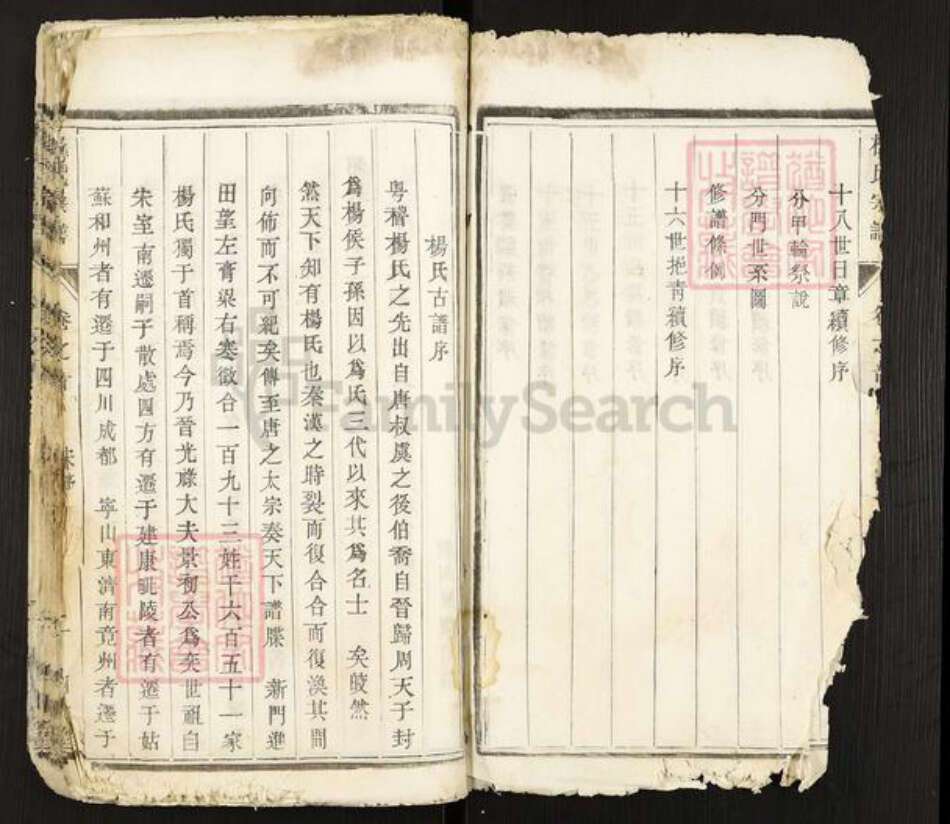 十八世日章續修序
分甲輪祭說
分門世系圖
修譜條例
十六世挹青續修序
楊氏古譜序
粤稽楊氏之先出自唐叔虞之後伯喬自晉歸周天子封
為楊侯子孫因以為氏三代以來其為名士 矣皎然
然天下知有楊氏也秦漢之時裂而復合合而復渙其間
向佈而不可紀矣傳至唐之太宗奏天下譜牒 新門進
田望左膏梁右寒微合一百九十三姓千六百五十一家
楊氏獨于首稱焉今乃晉光祿大夫景初公為奕世祖自
宋室南遷嗣子散處四方有遷于建康毗陵者有遷于姑
蘇和州者有遷于四川成都 寧山東濟南竟州者遷于
FamilySearch